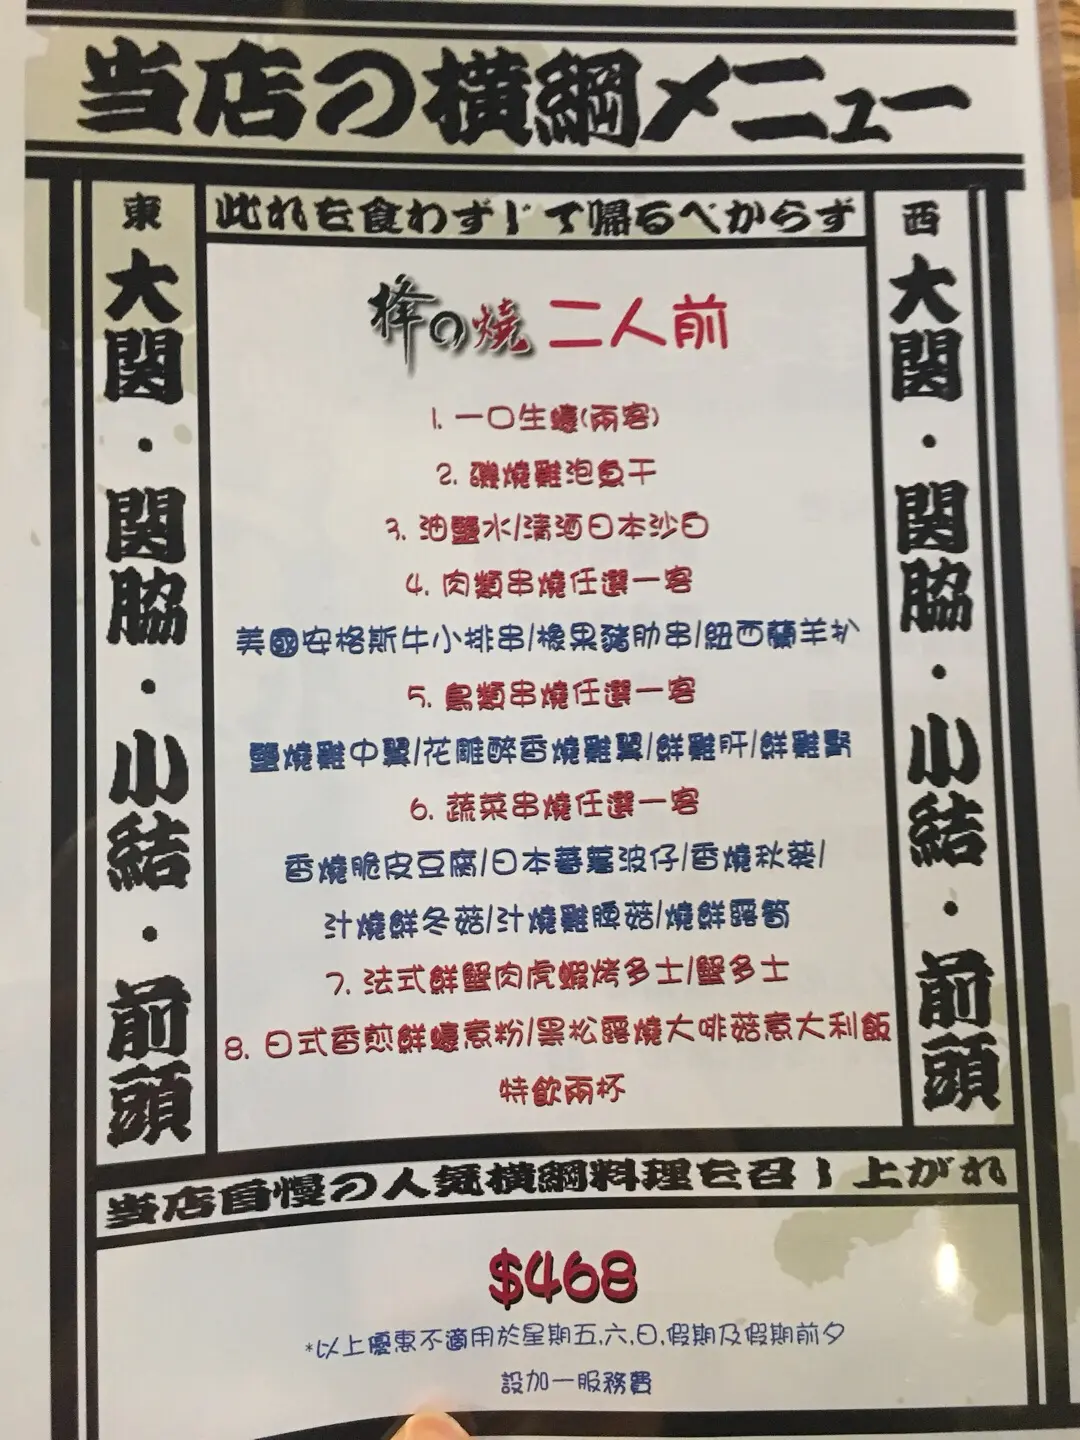 当店の横綱メニュー
東
大関・関脇・小結・前頭
此れを食わずして帰るべからず
西
大関・関脇・小結・前頭
の燒 二人前
1. 一口生蠔(兩客)
2. 磯燒雞泡魚干
3. 油鹽水/清酒日本沙白
4. 肉類串燒任選一客
美國安格斯牛小排串/橡果豬肋串/紐西蘭羊扒
5. 鳥類串燒任選一客
鹽燒雞中翼/花雕醉香燒雞翼/鮮雞肝/鮮雞腎
6. 蔬菜串燒任選一客
香燒脆皮豆腐/日本蕃薯波仔/香燒秋葵/
汁燒鮮冬菇/汁燒雞脾菇/燒鮮露筍
7. 法式鮮蟹肉虎蝦烤多士/蟹多士
8. 日式香煎鮮蠔煮粉/黑松露燒大啡菇意大利飯
特飲兩杯
当店自慢の人気横綱料理を召し上がれ
$468
*以上優惠不適用於星期五,六,日,假期及假期前夕
設加一服務費